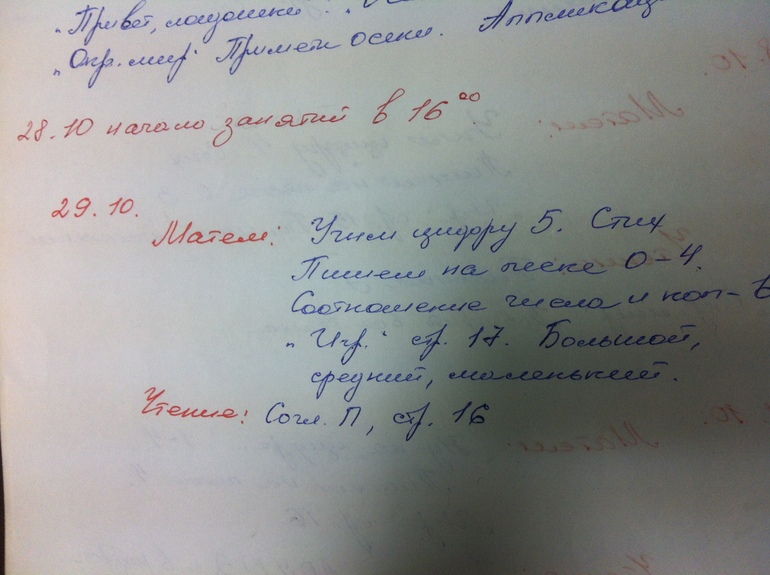 „Привет, ладошки".
„Окр. мир" Приметы осени. Аппликац
28.10 начало занятий в 16⁰⁰
29.10.
Матем: Учим цифру 5. Стих
Пишем на песке 0-4.
Соотношение числа и кол-в
„Игр." стр. 17. Большой,
средний, маленький.
Чтение: Согл. П, стр. 16